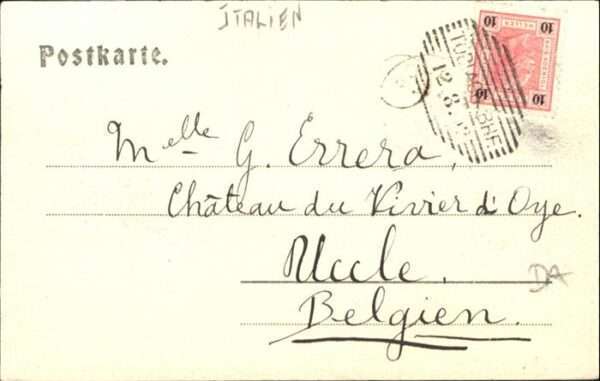 ITALIEN
Postkarte.
10 HELLER 10
10 10
12.8.
Melle G. Errera,
Château du Vivier d'Oye.
Uccle.
Belgien.
DA